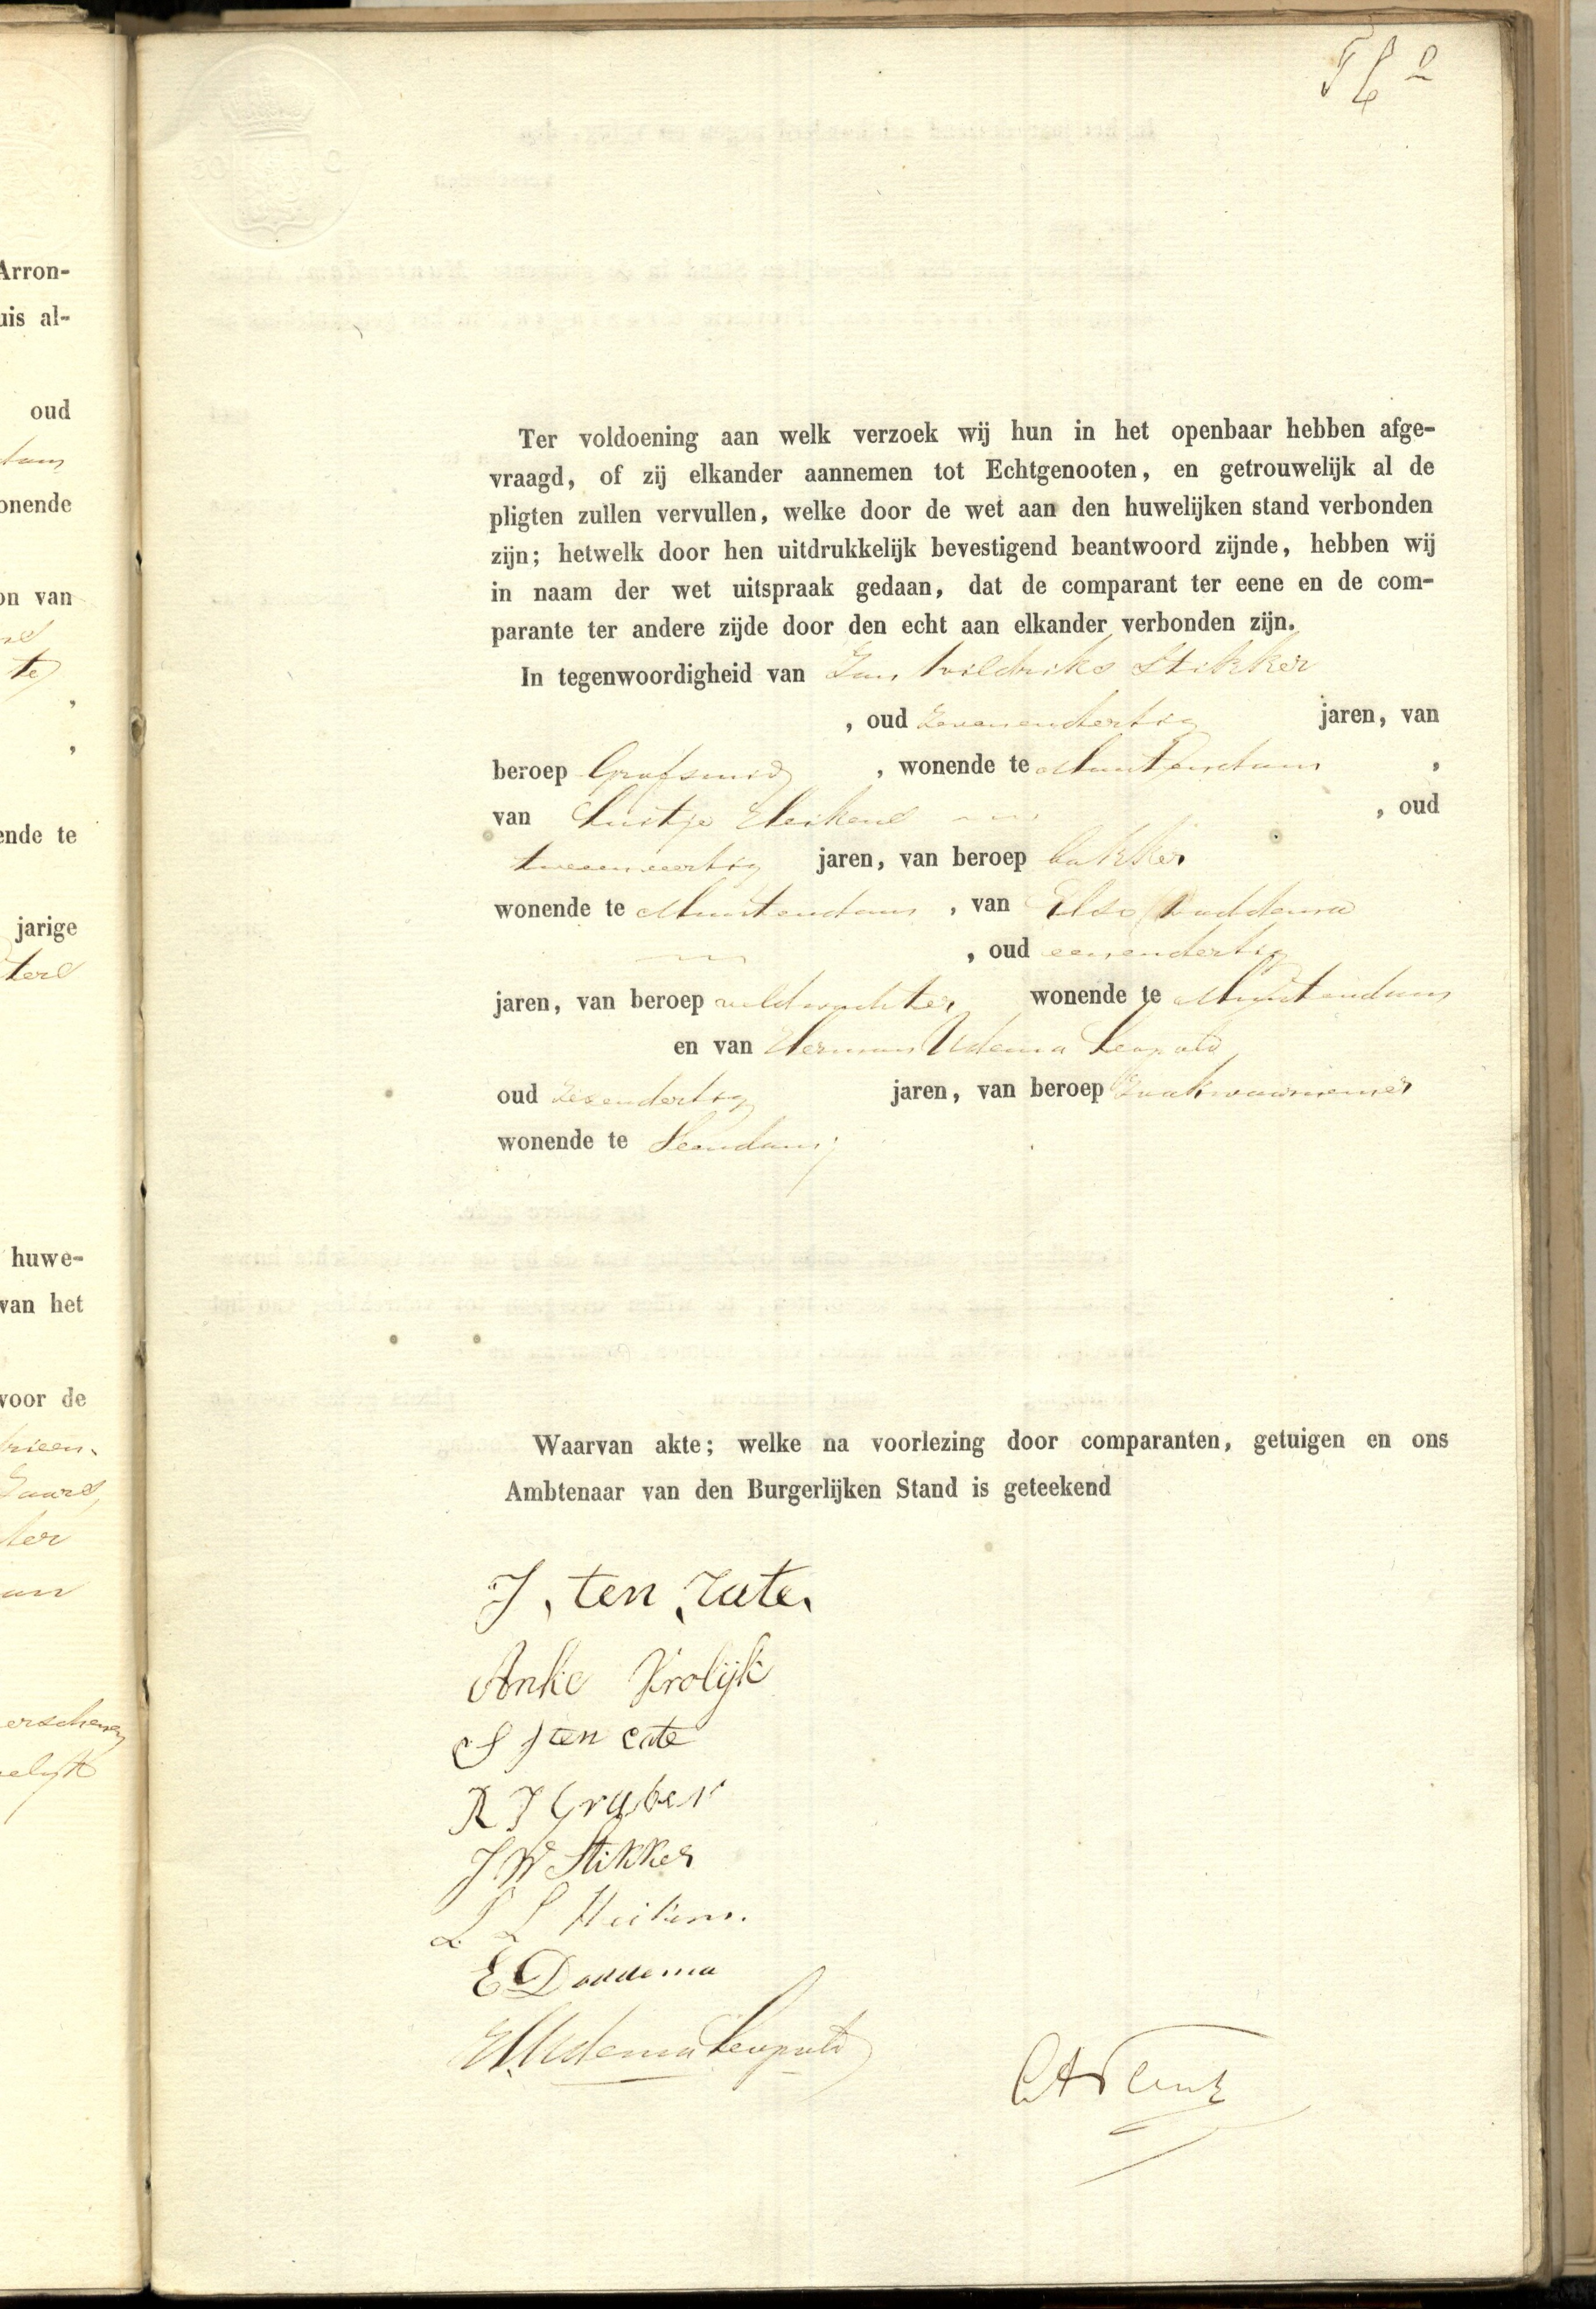 Arron-
uis al-
oud
dam
onende
on van
te
,
,
ende te
jarige
ters
huwe-
van het
voor de
ter
an
erschenen
elijk
Ter voldoening aan welk verzoek wij hun in het openbaar hebben afge-
vraagd, of zij elkander aannemen tot Echtgenooten, en getrouwelijk al de
pligten zullen vervullen, welke door de wet aan den huwelijken stand verbonden
zijn; hetwelk door hen uitdrukkelijk bevestigend beantwoord zijnde, hebben wij
in naam der wet uitspraak gedaan, dat de comparant ter eene en de com-
parante ter andere zijde door den echt aan elkander verbonden zijn.
In tegenwoordigheid van Jan Wildriks Stikker
, oud zevenendertig jaren, van
beroep Grofsmid , wonende te Muntendam ,
van Luitje Heikens , oud
tweeenveertig jaren, van beroep bakker
wonende te Muntendam , van Elso Doddema
, oud eenendertig
jaren, van beroep veldwachter wonende te Muntendam
en van Herman Udema Leopold
oud zesendertig jaren, van beroep zaakwaarnemer
wonende te Veendam;
Waarvan akte; welke na voorlezing door comparanten, getuigen en ons
Ambtenaar van den Burgerlijken Stand is geteekend
J. ten Cate.
Anke Vrolijk
S J ten Cate
R J Gruber
J W Stikker
L L Heikens.
E Doddema
H Udema Leopold